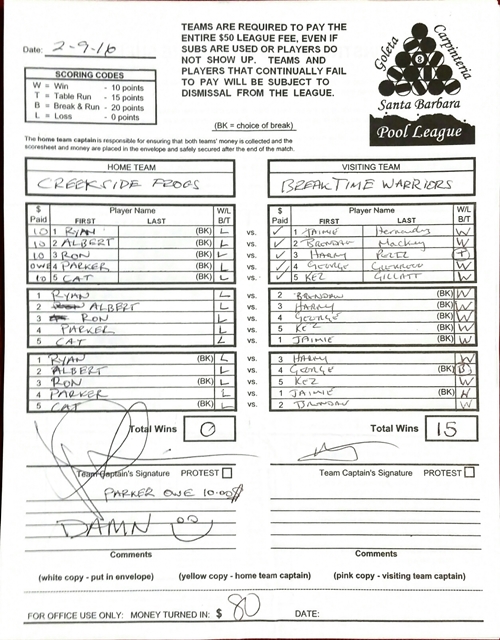 Date: 2-9-16
TEAMS ARE REQUIRED TO PAY THE
ENTIRE $50 LEAGUE FEE, EVEN IF
SUBS ARE USED OR PLAYERS DO
NOT SHOW UP. TEAMS AND
PLAYERS THAT CONTINUALLY FAIL
TO PAY WILL BE SUBJECT TO
DISMISSAL FROM THE LEAGUE.
(BK = choice of break)
Goleta Carpinteria
8
Santa Barbara
Pool League
SCORING CODES
W = Win - 10 points
T = Table Run - 15 points
B = Break & Run - 20 points
L = Loss - 0 points
The home team captain is responsible for ensuring that both teams' money is collected and the
scoresheet and money are placed in the envelope and safely secured after the end of the match.
HOME TEAM VISITING TEAM
CREEKSIDE FROGS BREAKTIME WARRIORS
$ Paid Player Name FIRST LAST W/L B/T $ Paid Player Name FIRST LAST W/L B/T
10 1 RYAN (BK) L vs. ✓ 1 JAIMIE Hernandez W
10 2 ALBERT (BK) L vs. ✓ 2 BRENDAN Mackey W
10 3 RON (BK) L vs. ✓ 3 HARRY PEREZ T
OWE 4 PARKER (BK) L vs. ✓ 4 GEORGE W
10 5 CAT (BK) L vs. ✓ 5 KEZ GILLATT W
1 RYAN L vs. 2 BRENDAN (BK) W
2 ALBERT L vs. 3 HARRY (BK) W
3 RON L vs. 4 GEORGE (BK) W
4 PARKER L vs. 5 KEZ (BK) W
5 CAT L vs. 1 JAIMIE (BK) W
1 RYAN (BK) L vs. 3 HARRY W
2 ALBERT L vs. 4 GEORGE (BK) B
3 RON (BK) L vs. 5 KEZ W
4 PARKER L vs. 1 JAIMIE (BK) W
5 CAT (BK) L vs. 2 BRENDAN W
Total Wins 0 Total Wins 15
Team Captain's Signature PROTEST Team Captain's Signature PROTEST
PARKER OWE 10.00$
DAMN
Comments Comments
(white copy - put in envelope) (yellow copy - home team captain) (pink copy - visiting team captain)
FOR OFFICE USE ONLY: MONEY TURNED IN: $ 80 DATE: